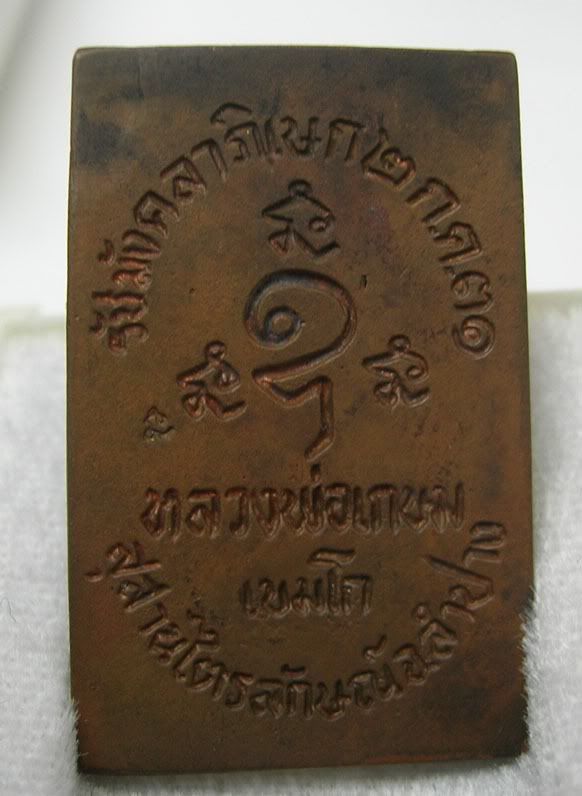 รัชมังคลาภิเษก ๒ ก.ค.๓๑
หลวงพ่อเกษม
เขมโก
สุสานไตรลักษณ์ จ.ลำปาง